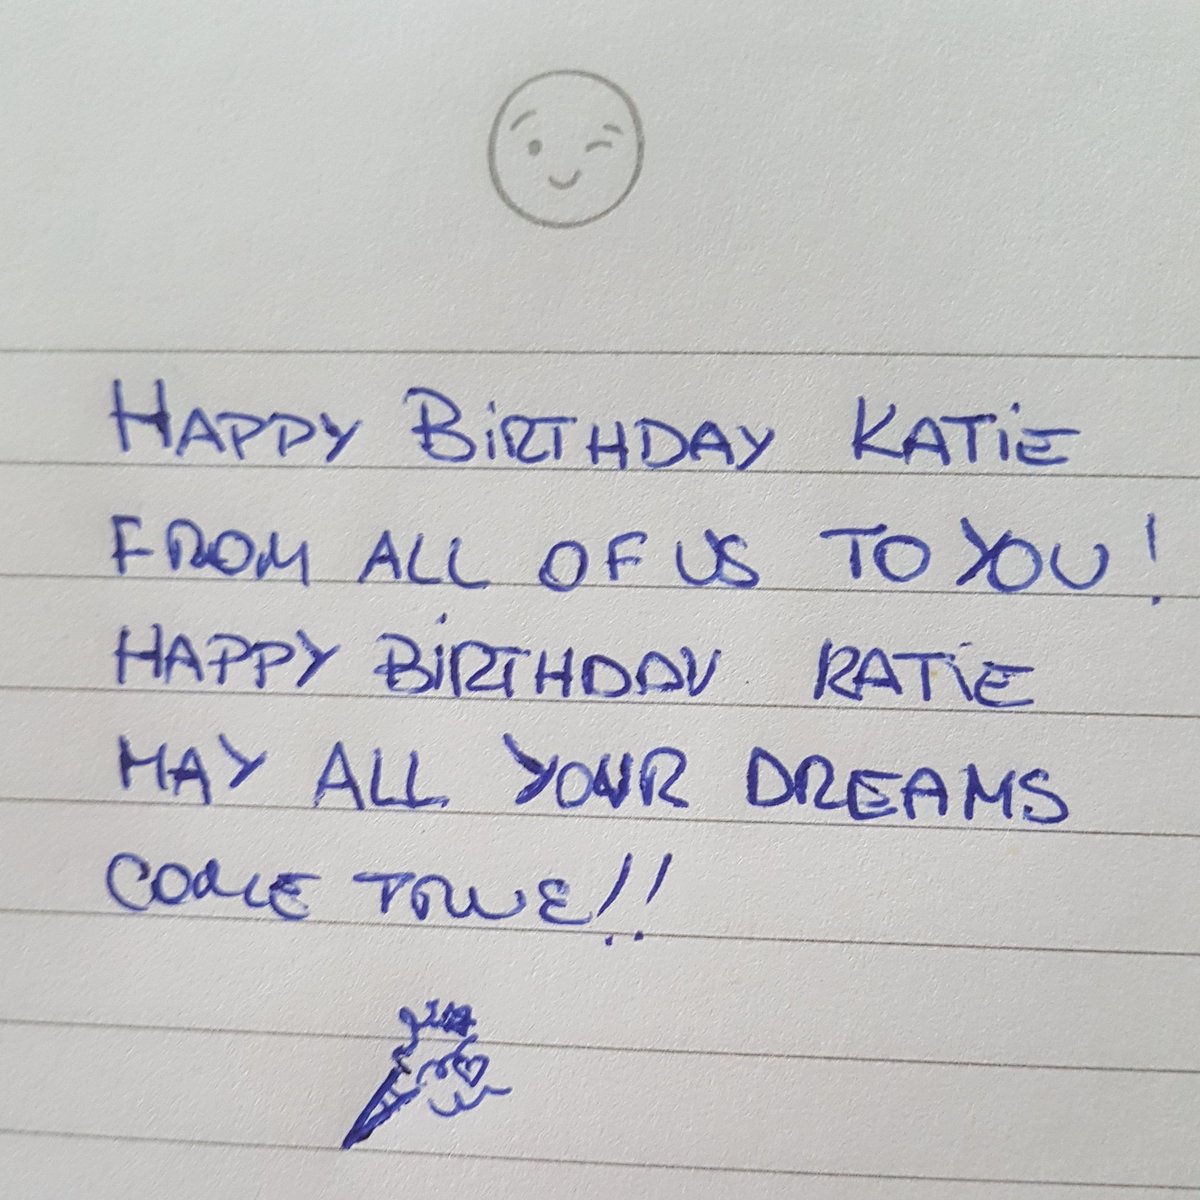 HAPPY BIRTHDAY KATIE
FROM ALL OF US TO YOU!
HAPPY BIRTHDAY KATIE
MAY ALL YOUR DREAMS
COME TRUE!!